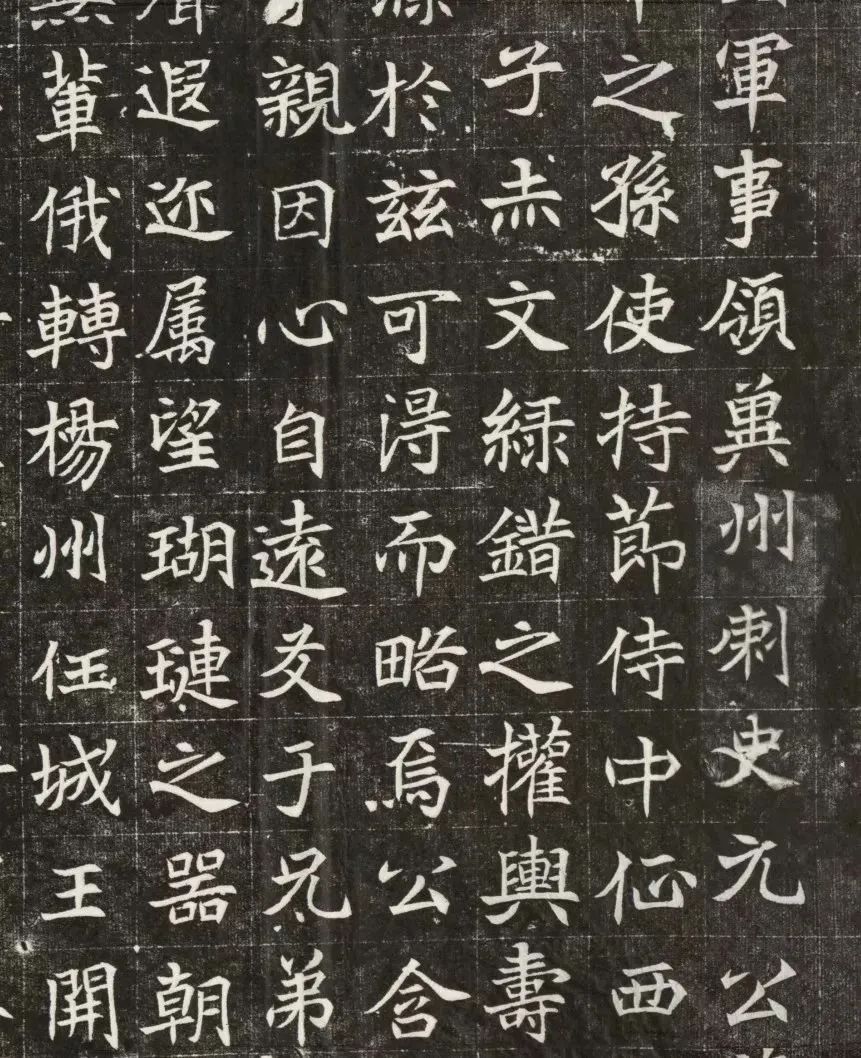 軍事領冀州刺史元公
之孫使持節侍中征西
子赤文緑錯之權輿壽
於兹可得而略焉公含
親因心自遠友于兄弟
遐迩属望瑚璉之器朝
輩俄轉楊州任城王開